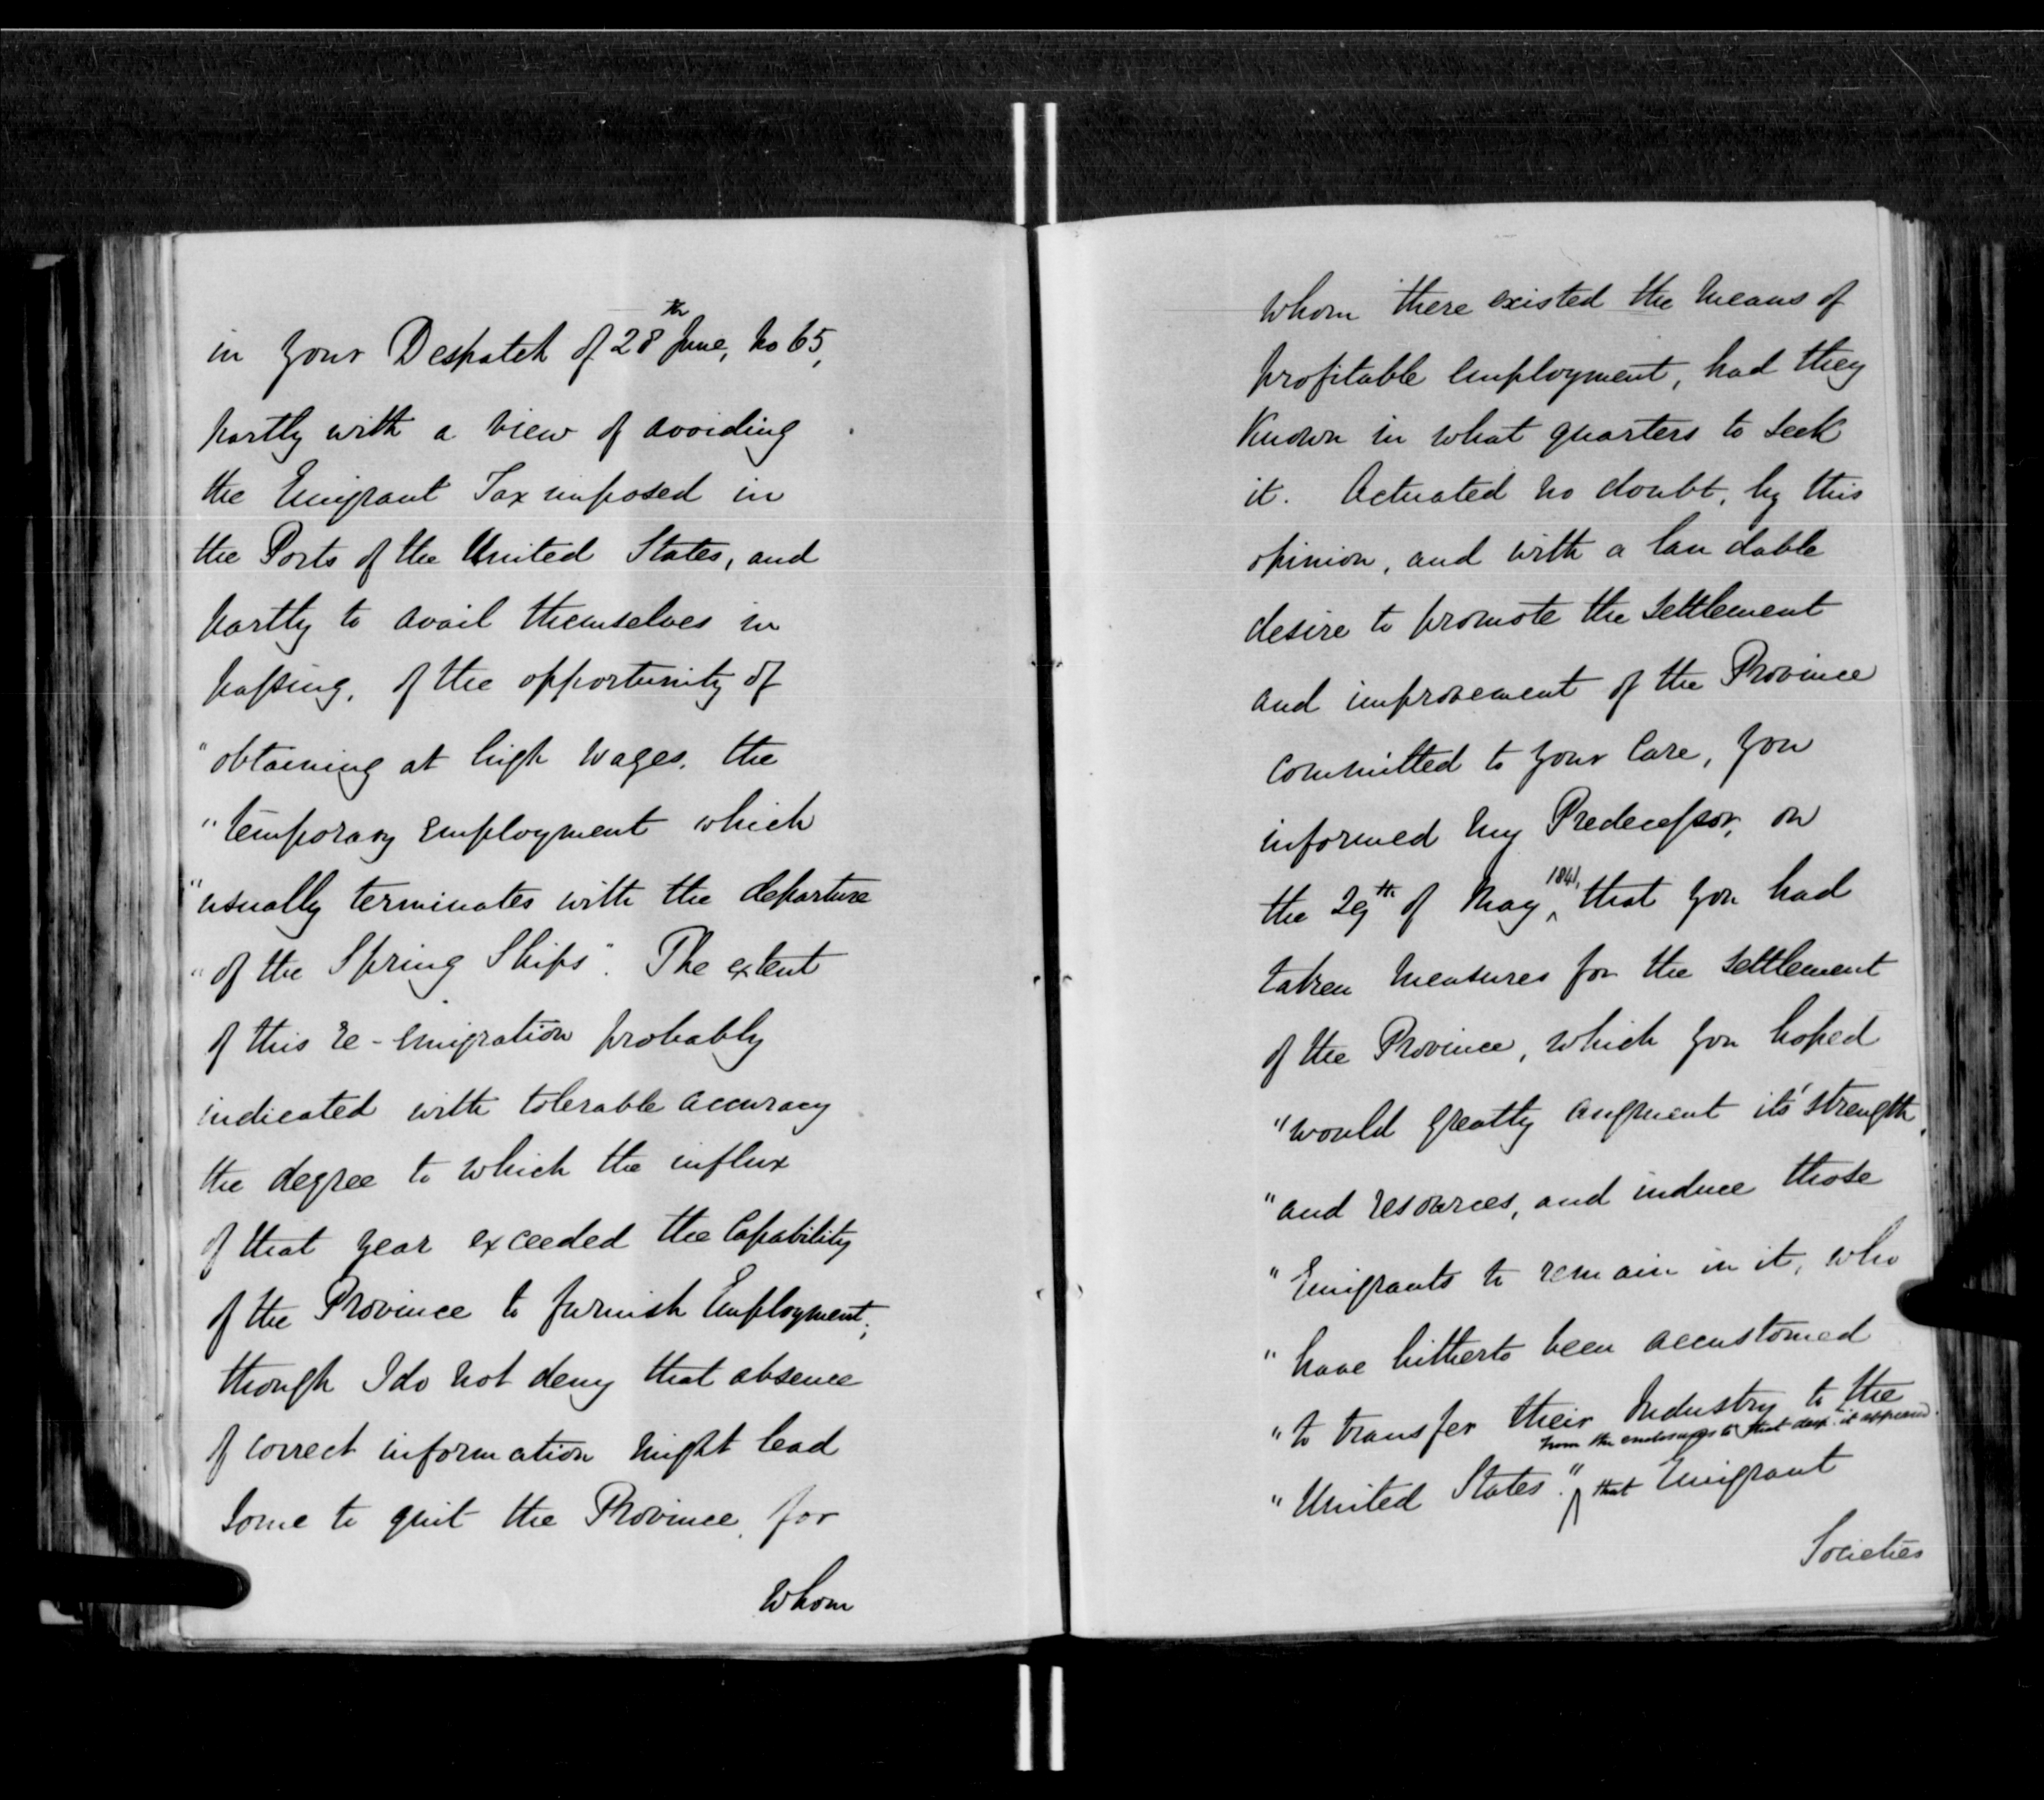 in your Despatch of 28th June, No 65,
partly with a view of avoiding
the Emigrant Tax imposed in
the Ports of the United States, and
partly to avail themselves in
passing, of the opportunity of
"obtaining at high wages, the
"temporary employment which
"usually terminates with the departure
"of the Spring Ships". The extent
of this re-emigration probably
indicated with tolerable accuracy
the degree to which the influx
of that year exceeded the Capability
of the Province to furnish Employment;
though I do not deny that absence
of correct information might lead
some to quit the Province, for
whom
whom there existed the means of
profitable employment, had they
known in what quarters to seek
it. Actuated no doubt, by this
opinion, and with a laudable
desire to promote the settlement
and improvement of the Province
committed to your Care, you
informed my Predecessor, on
the 29th of May, 1841, that you had
taken measures for the settlement
of the Province, which you hoped
"would greatly augment its' strength,
"and resources, and induce those
"Emigrants to remain in it, who
"have hitherto been accustomed
"to transfer their Industry to the
from the enclosures to that desp. it appeared
"United States." that Emigrant
Societies